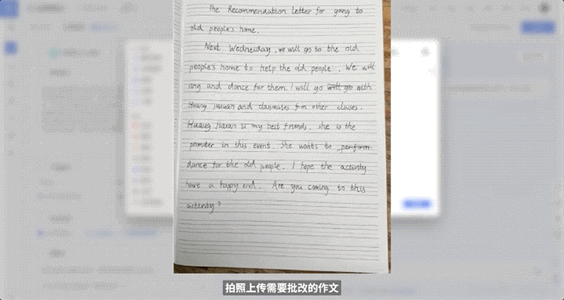 The Recommendation Letter for going to
old people's home.
Next Wednesday, we will go to the old
people's home to help the old people. We will
sing and dance for them. I will go with
Huang and classmates from other classes.
Huang is my best friends. She is the
in this event. She wants to perform
dance for the old people. I hope the activity
have a happy end. Are you coming to this
activity?
拍照上传需要批改的作文